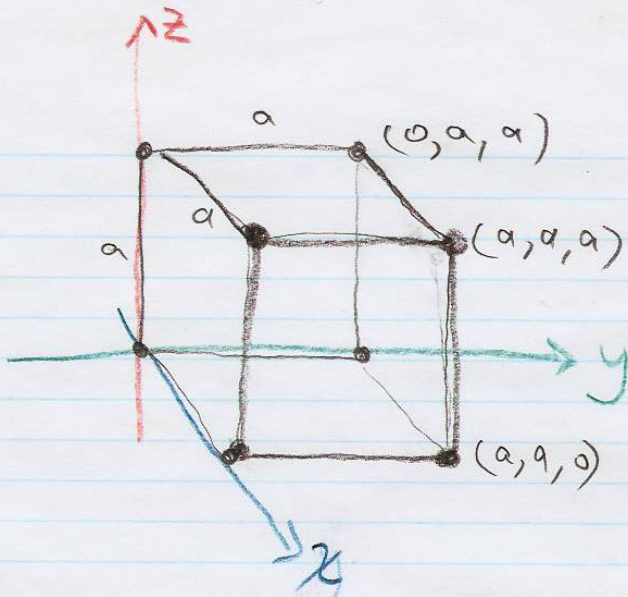 z
a
(0,a,a)
a
(a,a,a)
a
y
(a,a,0)
x